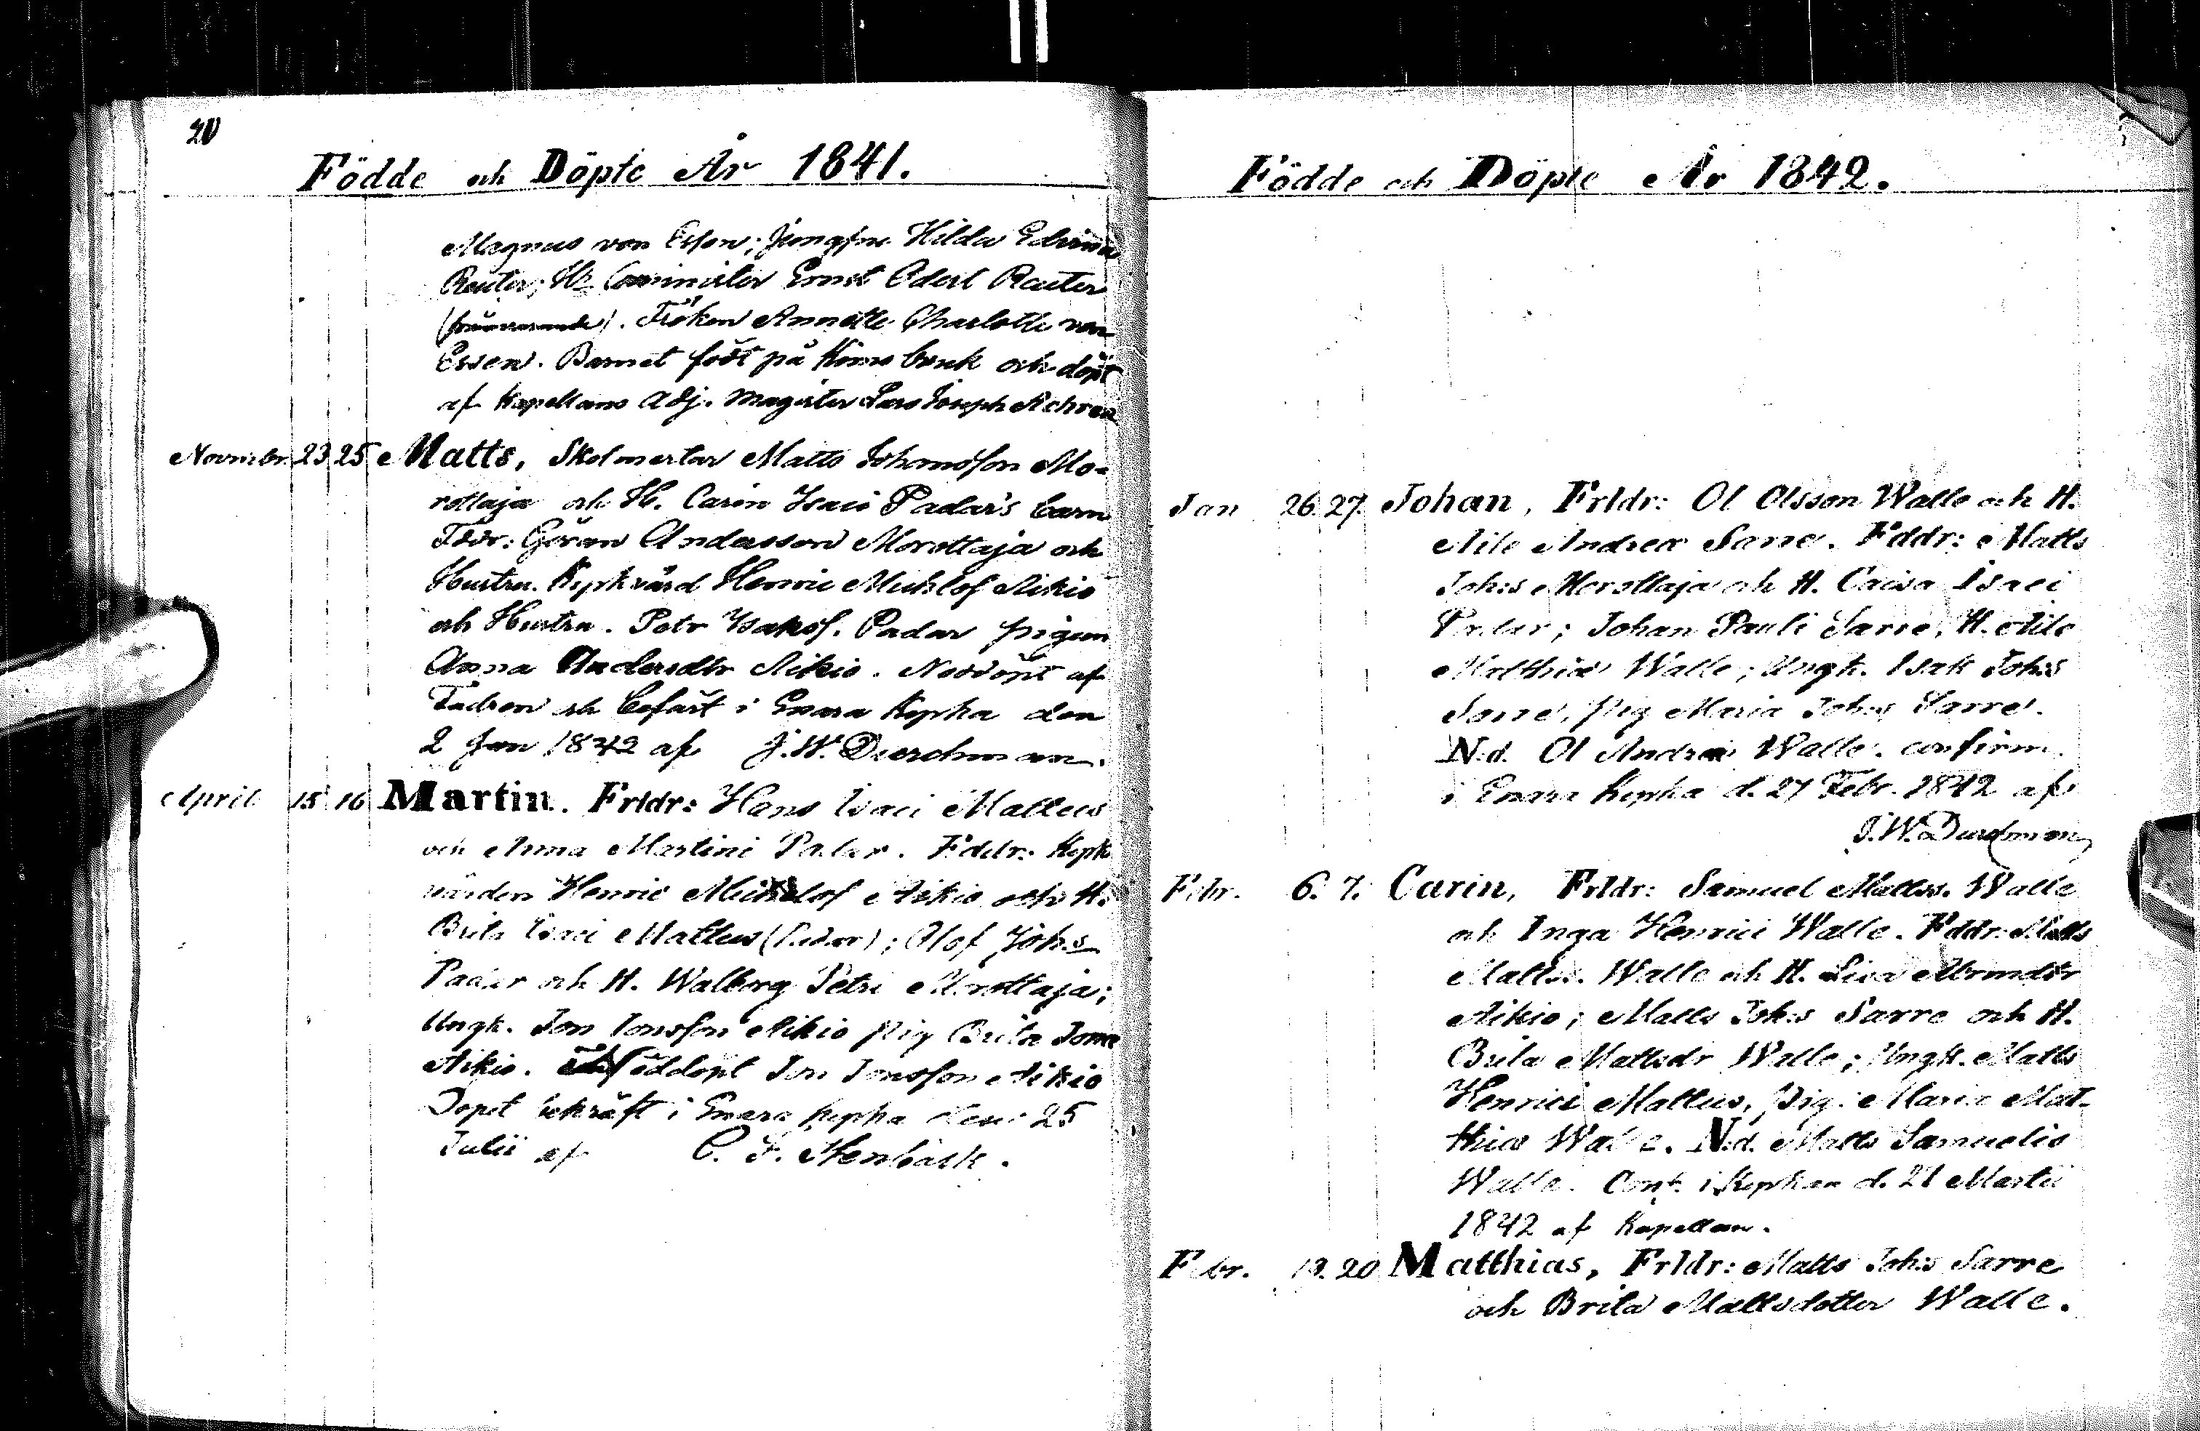 20
Födde och Döpte År 1841.
Magnus von Essen; Jungfru Hilda Edvina
Reuter; Hr Comminister Ernst Edert Reuter
(frånvarande). Fröken Annette Charlotte von
Essen. Barnet född på Kimo bruk och döpt
af Kapellans Adj. Magister Lars Joseph Achren
Novmbr. 23 25 Matts, Skolmestar Matts Johansson Mo-
rottaja och H. Carin Isaci Padar's barn
Fddr: Göran Andersson Morottaja och
Hustru. Kyrkvärd Henric Michlsf Aikio
och Hustru. Petr Isaksf. Padar pigan
Anna Andersdtr Aikio. Nöddöpt af
Fadren och befäst i Enara Kyrka den
2 Jan 1842 af J. W. Durchman.
April 15 16 Martin. Frldr: Hans Isaci Matteus
och Anna Martini Padar. Fddr: Kyrk
värden Henric Michelsf Aikio och H.
Brita Isaci Matteus (Padar); Olof Johs
Padar och H. Walborg Petri Morottaja;
Ungk. Jon Jonsson Aikio pig Brita Jonæ
Aikio. Nöddöpt Jon Jonsson Aikio
Dopet bekräft i Enara kyrka den 25
Julii af C. F. Stenbäck.
Födde och Döpte År 1842.
Jan 26. 27. Johan, Frldr: Ol Olsson Walle och H.
Aile Andreæ Sarre. Fddr: Matts
Johs Morottaja och H. Caisa Isaci
Padar; Johan Pauli Sarre, H. Aile
Matthiæ Walle; Ungk. Isak Johs
Sarre, pig Maria Johs Sarre.
N.d. Ol Andreæ Walle. confirm.
i Enara Kyrka d. 27 Febr. 1842 af
J. W. Durchman
Febr. 6. 7. Carin, Frldr: Samuel Mattss. Walle
och Inga Henrici Walle. Fddr: Matts
Mattss. Walle och H. Lisa Abrmdtr
Aikio; Matts Johs Sarre och H.
Brita Mattsdr Walle; Ungk. Matts
Henrici Matteus, Pig. Maria Mat-
thiæ Walle. N.d. Matts Samuelis
Walle. Conf. i Kyrkan d. 21 Martii
1842 af Kapellan.
Febr. 19. 20 Matthias, Frldr: Matts Johs Sarre
och Brita Mattsdotter Walle.